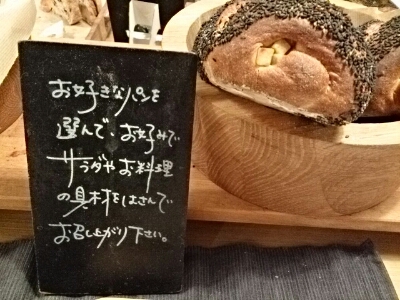 お好きなパンを
選んで、お好みで
サラダやお料理
の具材をはさんで
お召し上がり下さい。